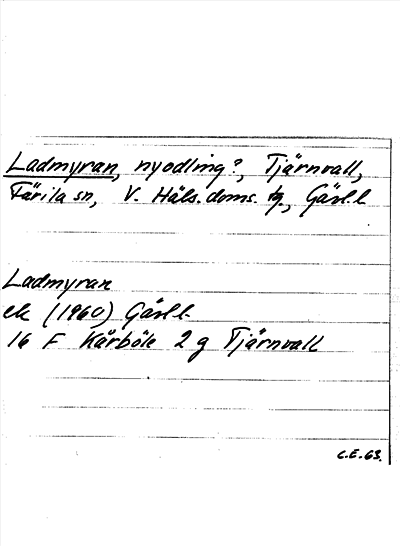 Ladmyran, nyodling?, Tjärnvall,
Färila sn, V. Häls. doms. tg., Gävl. l
Ladmyran
ek (1960) Gävl. l.
16 F Kårböle 2 g Tjärnvall
C.E. 63.